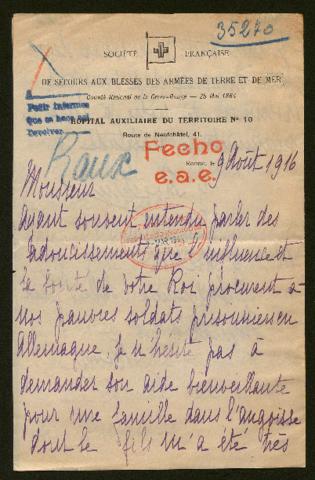 35270
SOCIÉTÉ FRANÇAISE
DE SECOURS AUX BLESSÉS DES ARMÉES DE TERRE ET DE MER
Comité National de la Croix-Rouge — 25 Mai 1864
Pedir informes
que se haga así
devolver
HÔPITAL AUXILIAIRE DU TERRITOIRE No 10
Route de Neufchâtel, 41.
Raux
Fecho
Rouen, le 9 Août 1916
e.a.e.
Monsieur
Ayant souvent entendu parler des
adoucissements que l'influence et
la bonté de votre Roi procurent à
nos pauvres soldats prisonniers en
Allemagne, je n'hésite pas à
demander son aide bienveillante
pour une famille dans l'angoisse
dont le fils m'a été très